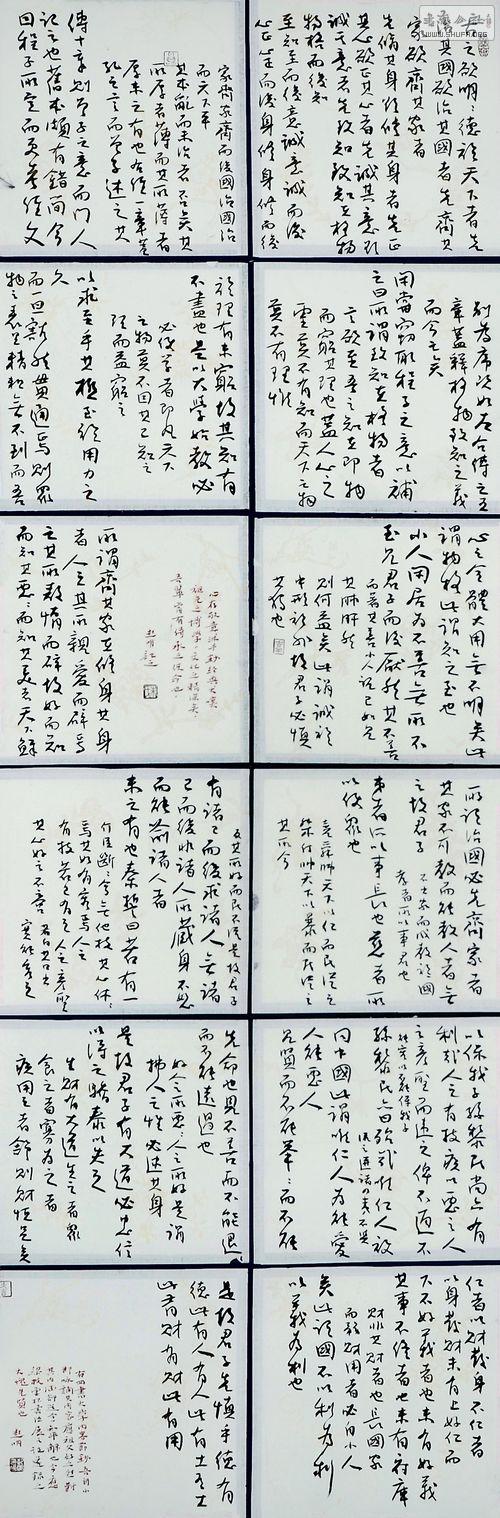 古之欲明明德於天下者先
治其國欲治其國者先齊其
家欲齊其家者
先脩其身欲修其身者先正
其心欲正其心者先誠其意欲
誠其意者先致知致知在格物
物格而後知
至知至而後意誠意誠而後
心正心正而後身修身修而後
家齊家齊而後國治國治
而天下平
其本亂而末治者否矣其
所厚者薄而其所薄者
厚未之有也右經一章蓋
孔子之言而曾子述之其
傳十章則曾子之意而門人
記之也舊本頗有錯簡今
因程子所定而更考經文
別為序次如左右傳之五
章蓋釋格物致知之義
而今亡矣
閒嘗竊取程子之意以補
之曰所謂致知在格物者
言欲至吾之知在即物
而窮其理也蓋人心之
靈莫不有知而天下之物
莫不有理惟
於理有未窮故其知有
不盡也是以大學始教必
必使學者即凡天下
之物莫不因其已知之
理而益窮之
以求至乎其極至於用力之
久
而一旦豁然貫通焉則眾
物之表里精粗無不到而吾
心之全體大用無不明矣此
謂物格此謂知之至也
小人閒居為不善無所不
至見君子而後厭然其不善
而著其善人之視己如見
其肺肝然
則何益矣此謂誠於
中形於外故君子必慎
其獨也
所謂齊其家在修身其身
者人之其所親愛而辟焉
之其所敖惰而辟故好而知
而知其惡天下鮮
所謂治國必先齊家者
其家不可教而能教人者無
之故君子
不出家而成教於國
孝者所以事君也
弟者所以事長也慈者所
以使眾也
堯舜帥天下以仁而民從之
桀紂帥天下以暴而民從之
其所令
反其所好而民不從是故君子
有諸己而後求諸人無諸
己而後非諸人所藏身不恕
而能喻諸人者
未之有也秦誓曰若有一
个臣斷斷兮無他技其心休休
焉其如有容焉人之
有技若己有之人之彥聖
其心好之不啻
若自其口出
寔能容之
以保我子孫黎民尚亦有
利哉人之有技疾以惡之人
之彥聖而違之俾不通不
能容以不能保我子
孫黎民亦曰殆哉唯仁人放
流之迸諸四夷不與
同中國此謂唯仁人為能愛
人能惡人
見賢而不能舉舉而不能
先命也見不善而不能退退
而不能遠過也
好人之所惡惡人之所好是謂
拂人之性必逮其身
是故君子有大道必忠信
以得之驕泰以失之
生財有大道生之者眾
食之者寡為之者
疾用之者舒則財恆足矣
仁者以財發身不仁者
以身發財未有上好仁而
下不好義者也未有好義
其事不終者也未有府庫
財非其財者也長國家
而務財用者必自小人
矣此謂國不以利為利
以義為利也
是故君子先慎乎德有
德此有人有人此有土有土
此有財有財此有用